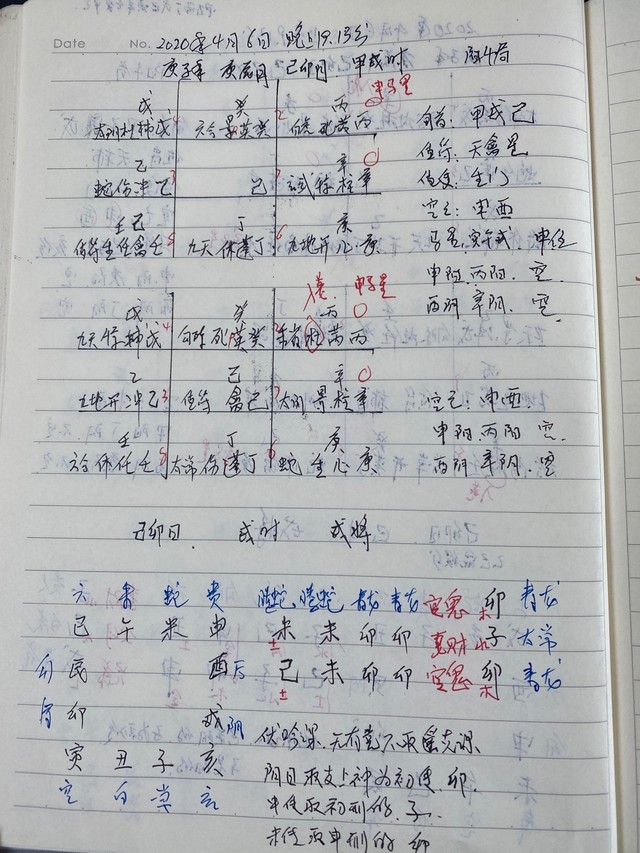 Date No. 2020年4月6日 晚上19.13分
庚子年 庚辰月 己卯日 甲戌时 阳4局
申马星
戊 癸 丙
太阴杜柿戊 六合景英癸 白虎死芮丙
旬首: 甲戌己
值符: 天禽星
己 辛
蛇伤冲乙 己 玄武惊柱辛
值使: 生门
空亡: 申酉
壬己 丁 庚
值符生任禽壬 九天休蓬丁 九地开心庚
马星: 寅午戌 申位
申阳. 丙阳. 空
酉阴 辛阴. 空
申马星
戊 癸 丙
九天 戊 白虎死英癸 朱雀 芮丙
乙 己 辛
九地开冲乙 值符 禽己 太阴景柱辛
空亡: 申酉.
壬 丁 庚
六合休任壬 太常伤蓬丁 蛇生心庚
申阳. 丙阳 空.
酉阴 辛阴. 空
己卯日. 戌时 戌将
六 朱 蛇 贵 螣蛇 螣蛇 青龙 青龙 官鬼 卯 青龙
巳 午 未 申 未 未 卯 卯 妻财 子 太常
勾 辰 酉 后 己 未 卯 卯 官鬼 卯 青龙
卯 戌 阴
寅 丑 子 亥
空 白 常 玄
伏吟课. 无有克不取
阴日取支上神为初传. 卯.
中传取初刑的. 子.
末传取中刑的 卯